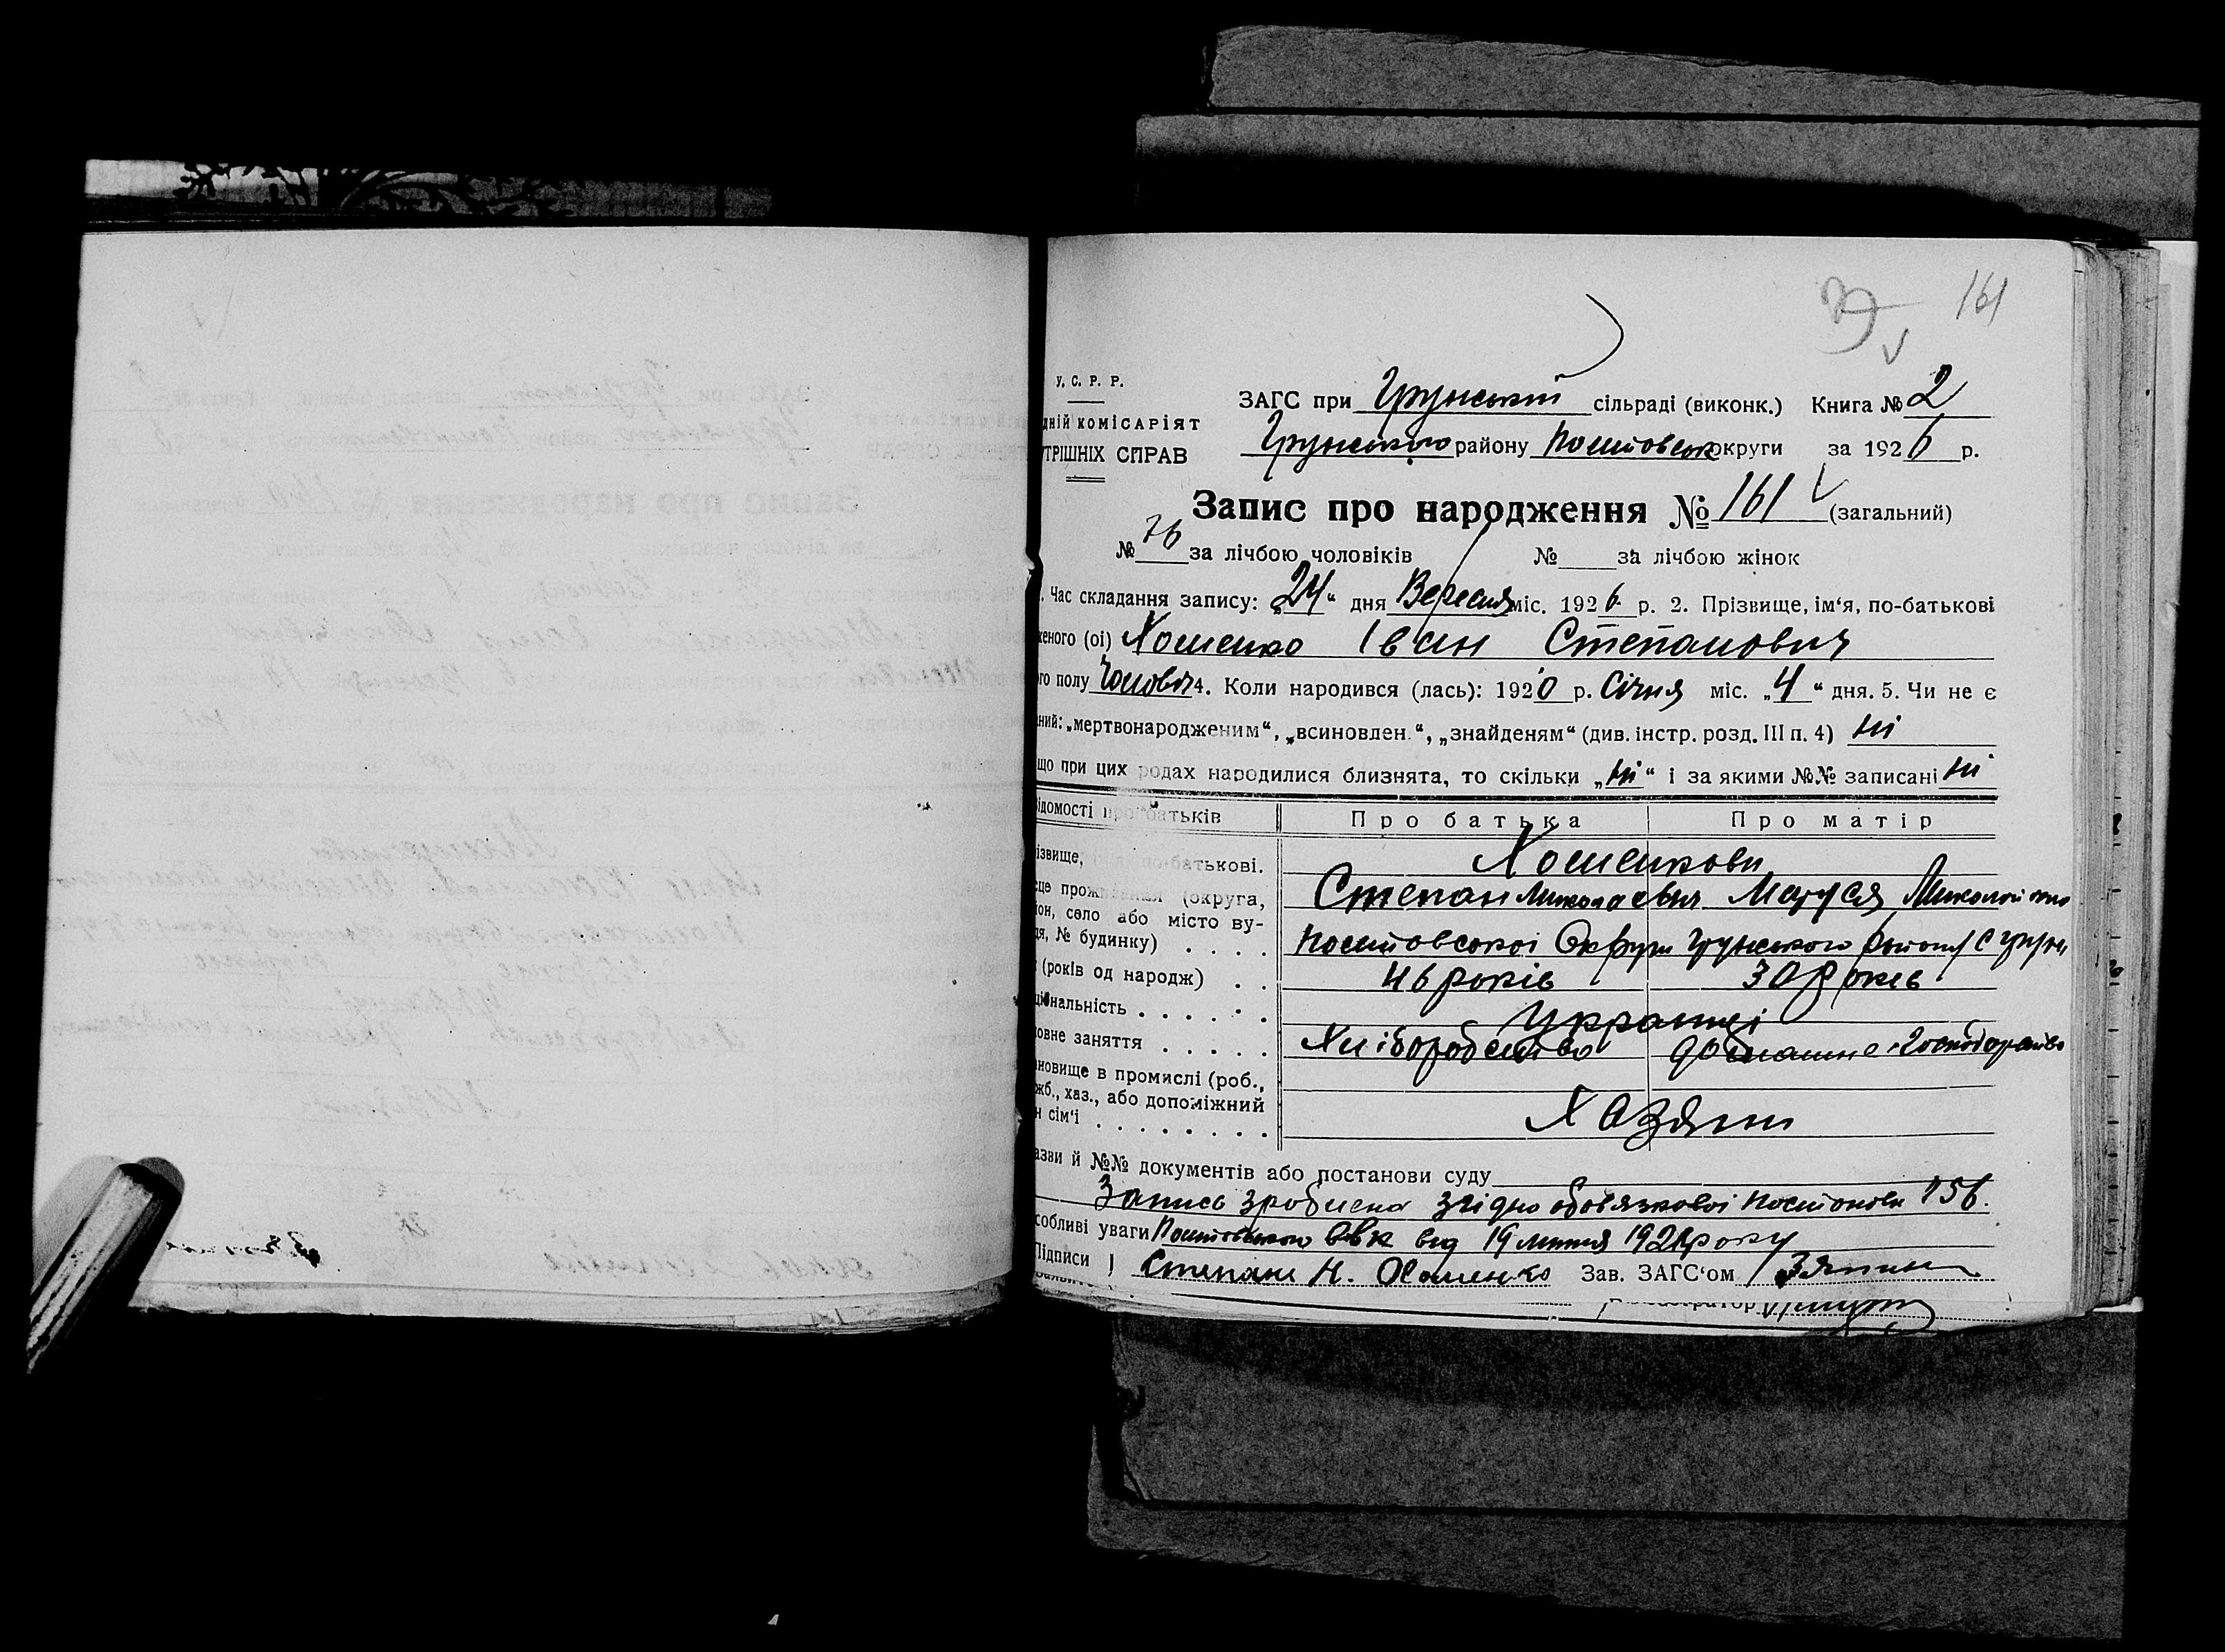 161
У. С. Р. Р.
ЗАГС при Грунській сільраді (виконк.) Книга № 2
дній комісаріят
Грунського району Полтавськ округи за 1926 р.
трішніх справ
Запис про народження № 161 (загальний)
№ 76 за лічбою чоловіків № за лічбою жінок
. Час складання запису: „24“ дня Вересня міс. 1926 р. 2. Прізвище, ім‘я, по-батькові
женого (ої) Хоменко Іван Степанович
го полу Чоловіч 4. Коли народився (лась): 1920 р. Січня міс. „4“ дня. 5. Чи не є
ний: „мертвонародженим“, „всиновлен.“, „знайденям“ (див. інстр. розд. III п. 4) ні
що при цих родах народилися близнята, то скільки „ні“ і за якими №№ записані ні
ідомості про батьків Про батька Про матір
ізвище, по-батькові. Хоменкови
Степан Миколаевич Маруся
сце проживання (округа,
он, село або місто ву-
ця, № будинку) . . . . Округи Грунського району с Грунь
(років од народж) . . 46 років 30 років
ціональність . . . . . . Українці
овне заняття . . . . . Хліборобство домашнє господарство
новище в промислі (роб.,
жб., хаз., або допоміжний
н сім‘ї . . . . . . . . Хазяїни
азви й №№ документів або постанови суду
Запись зроблена згідно обов'язкової постанови 156.
собливі уваги ОВК від 19 1926 року
Підписи Степан Н. Хоменко Зав. ЗАГС‘ом